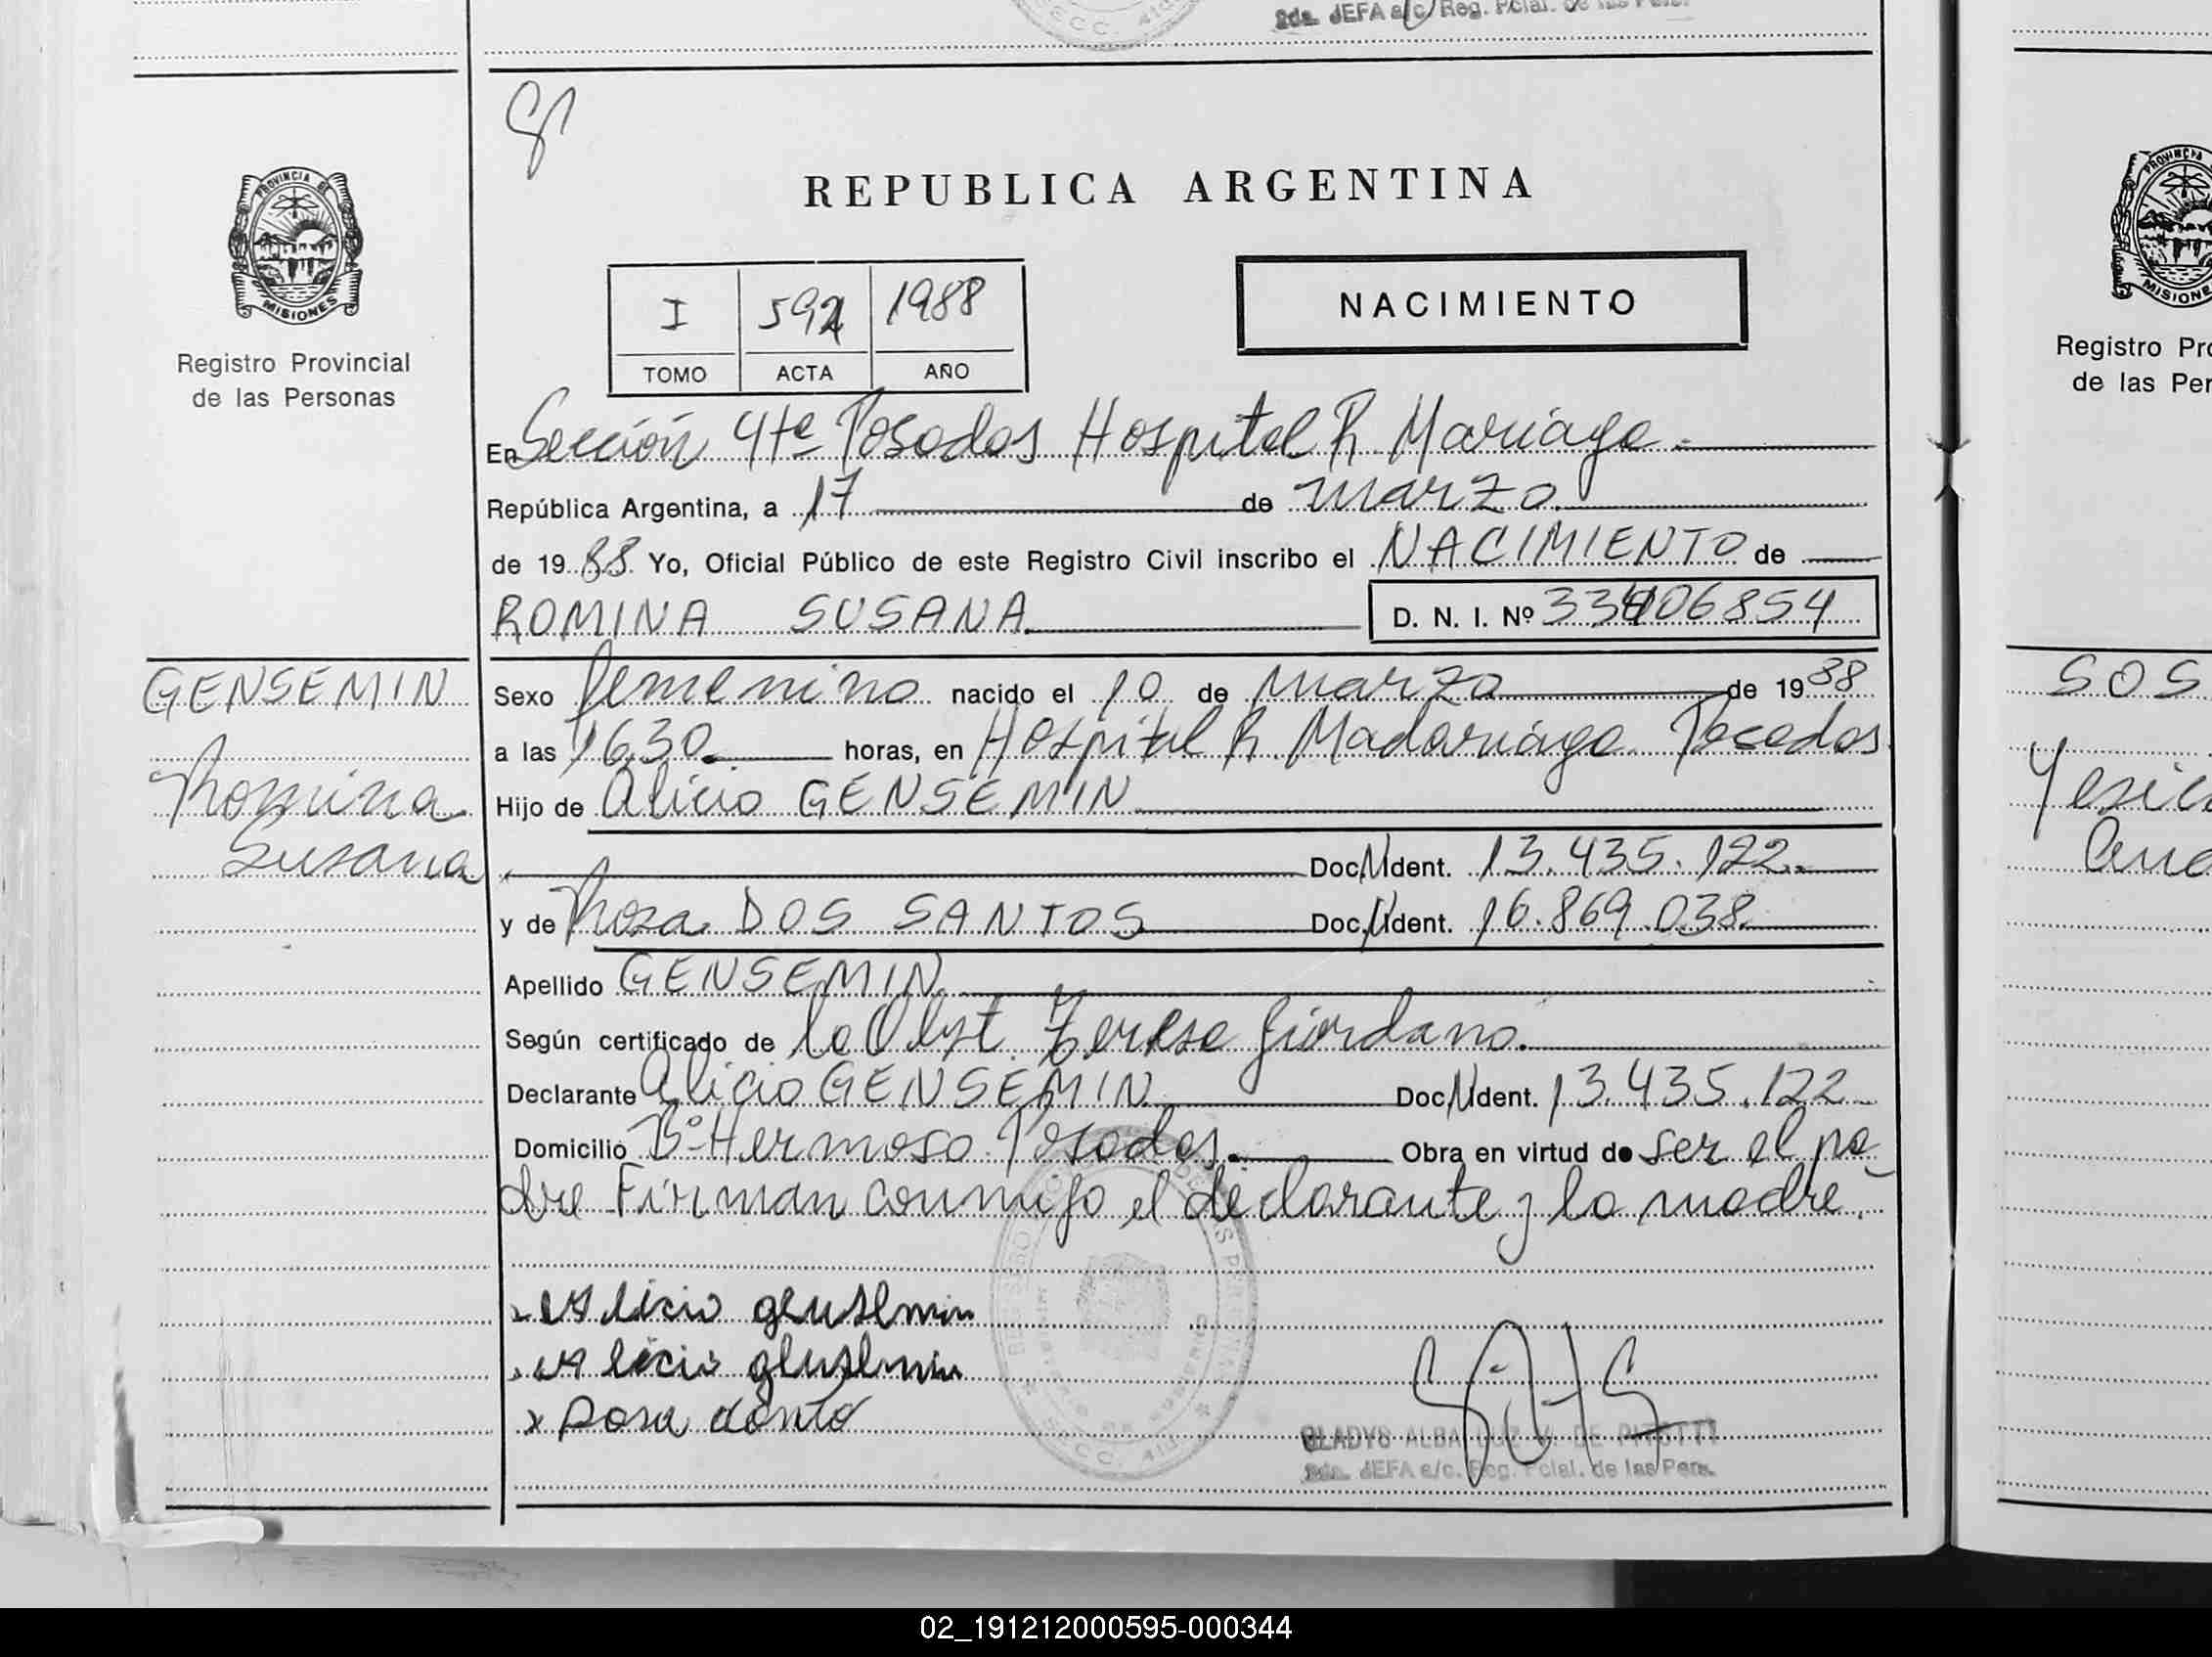 2da. JEFA a/c Reg. Pcial. de las Pers.
REPUBLICA ARGENTINA
PROVINCIA DE
MISIONES
Registro Provincial
de las Personas
I 592 1988
TOMO ACTA AÑO
NACIMIENTO
En Sección 4ta Posadas Hospital R. Mariaga.
República Argentina, a 17 de marzo
de 1988 Yo, Oficial Público de este Registro Civil inscribo el NACIMIENTO de
ROMINA SUSANA D. N. I. Nº 33406854
GENSEMIN
Romina
Susana
Sexo femenino nacido el 10 de marzo de 1988
a las 16,30 horas, en Hospital R. Madariaga Posadas
Hijo de Alicio GENSEMIN
Doc. N Ident. 13.435.122
y de Rosa DOS SANTOS Doc. N Ident. 16.869.038
Apellido GENSEMIN
Según certificado de la Obst. Teresa Giordano.
Declarante Alicio GENSEMIN Doc. N Ident. 13.435.122
Domicilio Bº Hermoso Posadas. Obra en virtud de ser el pa-
dre Firman conmigo el declarante y la madre.
x Alicio gensemin
x Alicio gensemin
x Rosa dosnto
GLADYS ALBA LUZ V. DE PITOTTI
2da. JEFA a/c. Reg. Pcial. de las Pers.
PROVINCIA
MISIONE
Registro Pro
de las Per
SOS
Yesica
Ana
02_191212000595-000344